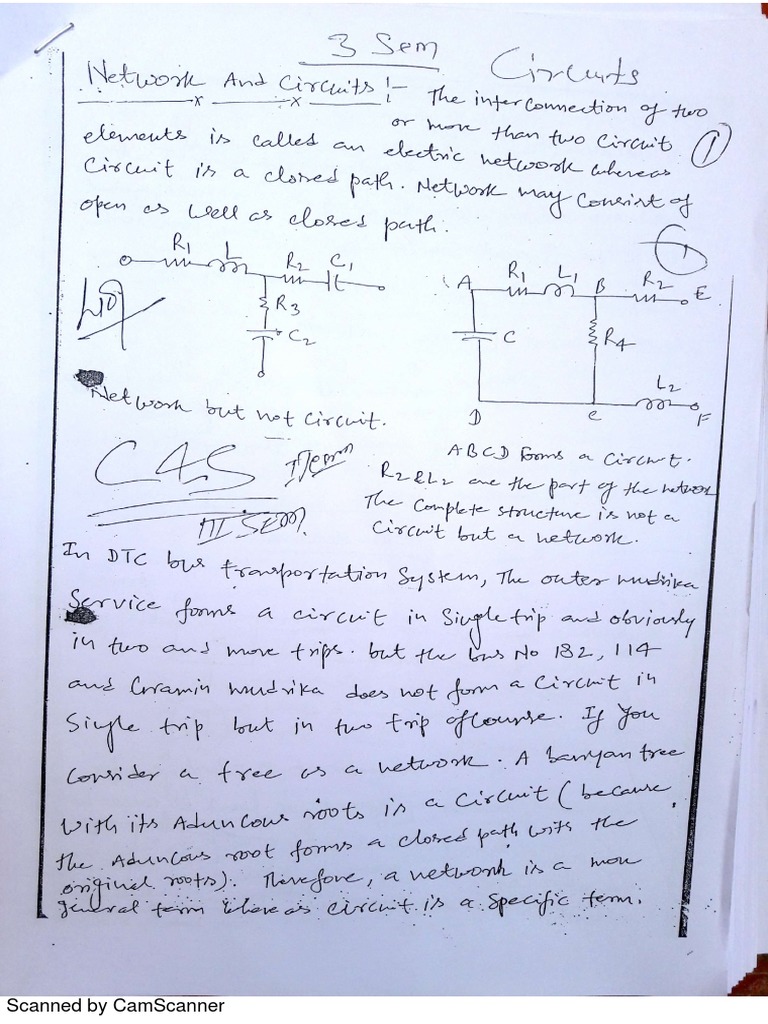 3 Sem
Circuits
Network And Circuits :- The interconnection of two
or more than two circuit
elements is called an electric network whereas
Circuit is a closed path. Network may consist of
open as well as closed path.
1
R1 L R2 C1
R3
C2
A R1 L1 B R2 E
C R4
L2
D C F
Network but not circuit.
ABCD forms a circuit.
R2 & L2 are the part of the network
The complete structure is not a
circuit but a network.
CAS
III SEM.
In DTC bus transportation System, The outer mudrika
Service forms a circuit in Single trip and obviously
in two and more trips. but the bus No 182, 114
and Gramin mudrika does not form a circuit in
Single trip but in two trip ofcourse. If you
consider a tree as a network. A banyan tree
with its Aduncous roots is a circuit (because
the Aduncous root forms a closed path with the
original roots). Therefore, a network is a more
general term whereas circuit is a specific term.
Scanned by CamScanner